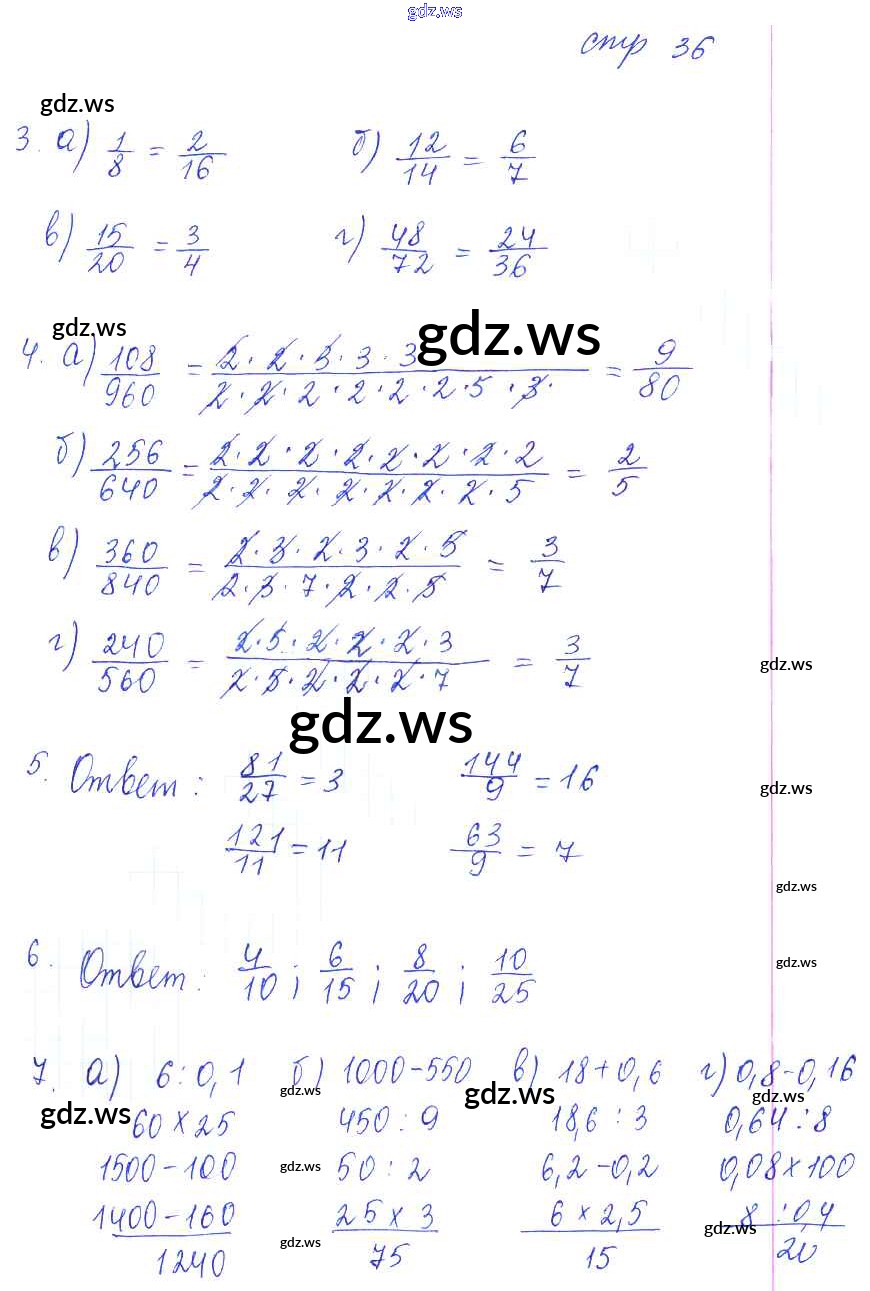 gdz.ws
стр 36
gdz.ws
3. а) 1/8 = 2/16 б) 12/14 = 6/7
в) 15/20 = 3/4 г) 48/72 = 24/36
gdz.ws gdz.ws
4. а) 108/960 = 2·2·3·3·3/2·2·2·2·2·2·5·3· = 9/80
б) 256/640 = 2·2·2·2·2·2·2·2/2·2·2·2·2·2·2·5 = 2/5
в) 360/840 = 2·3·2·3·2·5/2·3·7·2·2·5 = 3/7
г) 240/560 = 2·5·2·2·2·3/2·5·2·2·2·7 = 3/7
gdz.ws
gdz.ws
5. Ответ: 81/27 = 3 144/9 = 16
gdz.ws
121/11 = 11 63/9 = 7
gdz.ws
6. Ответ: 4/10; 6/15; 8/20; 10/25
gdz.ws
7. а) 6:0,1 б) 1000-550 в) 18+0,6 г) 0,8-0,16
gdz.ws gdz.ws gdz.ws gdz.ws
60×25 450:9 18,6:3 0,64:8
1500-100 50:2 6,2-0,2 0,08×100
gdz.ws
1400-160 25×3 6×2,5 8:0,4
gdz.ws gdz.ws
1240 75 15 20